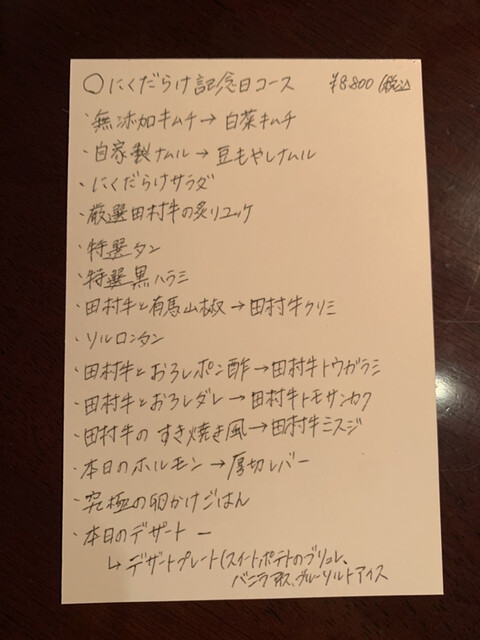 ○にくだらけ記念日コース ¥8.800(税込)
・無添加キムチ→白菜キムチ
・自家製ナムル→豆もやしナムル
・にくだらけサラダ
・厳選田村牛の炙りユッケ
・特選タン
・特選黒ハラミ
・田村牛と有馬山椒→田村牛クリミ
・ソルロンタン
・田村牛とおろしポン酢→田村牛トウガラミ
・田村牛とおろしダレ→田村牛トモサンカク
・田村牛のすき焼き風→田村牛ミスジ
・本日のホルモン→厚切レバー
・究極の卵かけごはん
・本日のデザート ー
↳デザートプレート(スイートポテトのブリュレ、
バニラアイス、ブルーソルトアイス